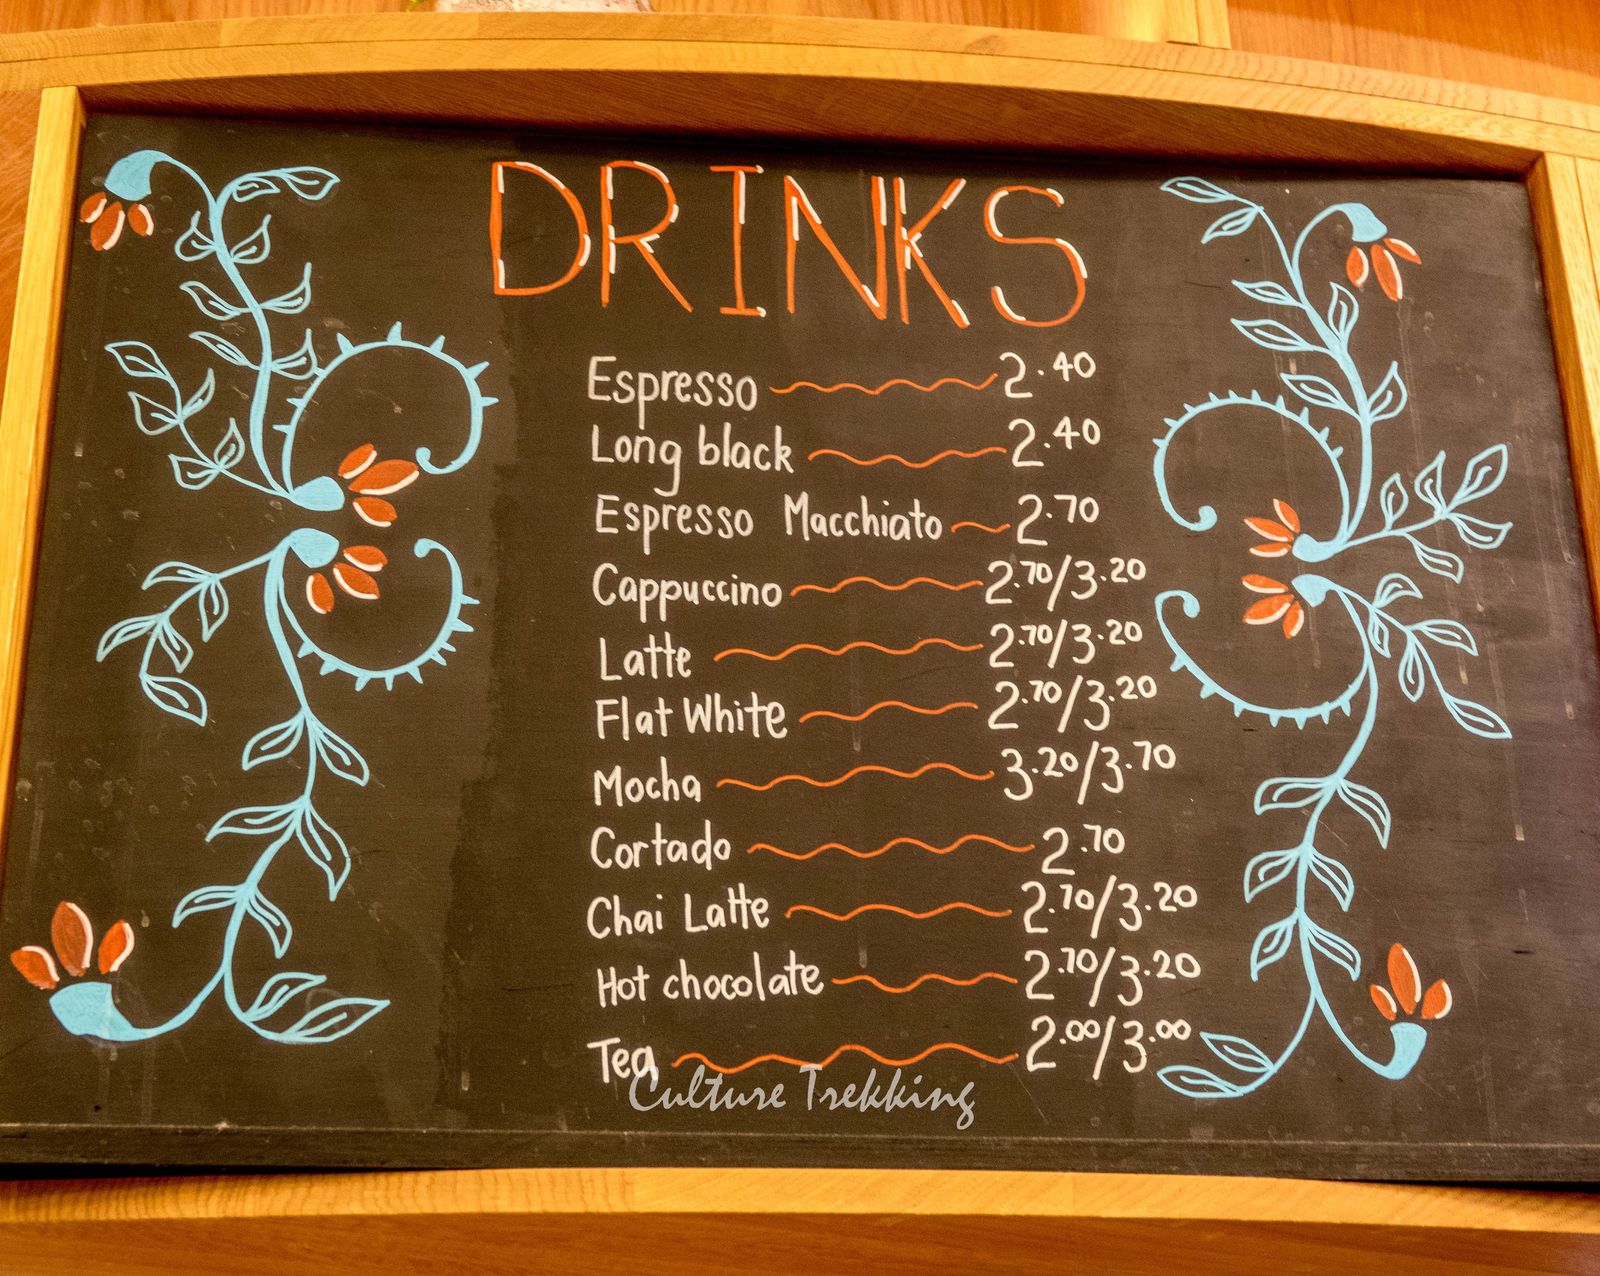 DRINKS
Espresso 2.40
Long black 2.40
Espresso Macchiato 2.70
Cappuccino 2.70/3.20
Latte 2.70/3.20
Flat White 2.70/3.20
Mocha 3.20/3.70
Cortado 2.70
Chai Latte 2.70/3.20
Hot chocolate 2.70/3.20
Tea 2.00/3.00
Culture Trekking